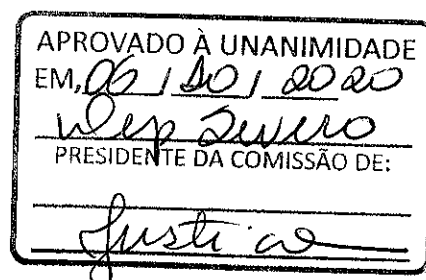 APROVADO À UNANIMIDADE
EM, 06 / 10 / 2020
Dep Severo
PRESIDENTE DA COMISSÃO DE:
Justiça